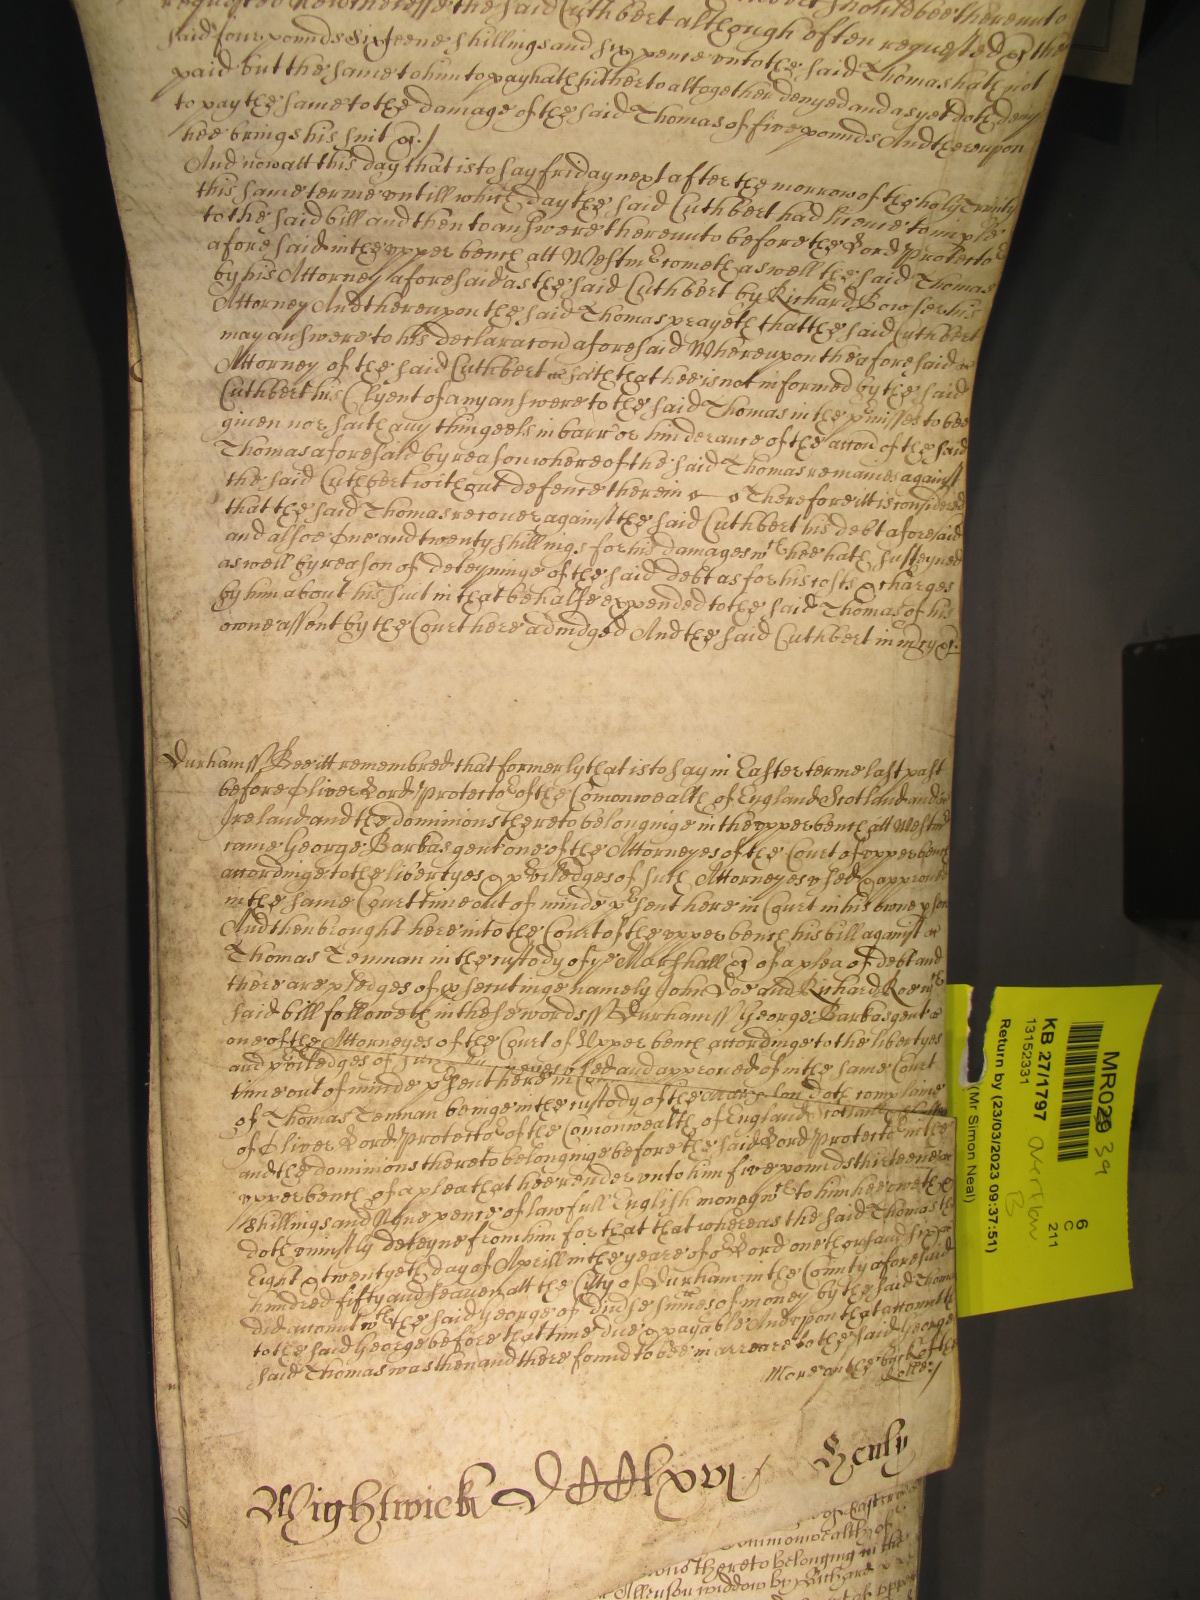 requested Nevertheless the said Cuthbert although often requested &c the
said foure pounds sixteene shillings and six pence unto the said Thomas hath not
paid but the same to him to pay hath hitherto altogether denyed and as yet doth deny
to pay the same to the damage of the said Thomas of five pounds And thereupon
hee brings his suit &c./
And now att this day that is to say friday next after the morrow of the holy Trinity
this same terme untill which day the said Cuthbert had licence to imple
to the said bill and then to answere thereunto before the Lord Protector
aforesaid in the upper bench att Westmr cometh as well the said Thomas
by his Attorney aforesaid as the said Cuthbert by Richard Bowser his
Attorney And thereupon the said Thomas prayeth that the said Cuthbert
may answere to his declaracon aforesaid Whereupon the aforesaid
Attorney of the said Cuthbert saith that hee is not informed by the said
Cuthbert his Clyent of any answere to the said Thomas in the p'misses to bee
given nor saith any thing eels in barr or hinderance of the accon of the said
Thomas aforesaid by reason whereof the said Thomas remaines against
the said Cuthbert without defence therein Therefore itt is considered
that the said Thomas recover against the said Cuthbert his debt aforesaid
and alsoe One and twenty shillings for his damages wch hee hath susteyned
as well by reason of deteyninge of the said debt as for his costs & charges
by him about his suit in that behalfe expended to the said Thomas of his
owne assent by the Court here adiudged And the said Cuthbert in mcy &c.
Durham ss Bee itt remembred that formerly that is to say in Easter terme last past
before Oliver Lord Protector of the Comonwealth of England Scotland and
Ireland and the dominions thereto belonginge in the upper bench att Westmr
came George Barbas gent one of the Attorneyes of the Court of upper bench
accordinge to the libertyes & p'viledges of such Attorneyes used & approved
in the same Court time out of minde p'sent here in Court in his owne p'son
And then brought here into the Court of the upper bench his bill against
Thomas Temnan in the custody of ye Marshall &c of a plea of debt and
there are pledges of p'secutinge namely John Doe and Richard Roe wch
said bill followeth in these words ss Durham ss George Barbas gent
one of the Attorneyes of the Court of Upper bench accordinge to the libertyes
and p'viledges of such used and approved of in the same Court
time out of minde p'sent here in doth complaine
of Thomas Temnan beinge in the custody of the
of Oliver Lord Protector of the Comonwealth of England Scotland
and the dominions thereto belonginge before the said Lord Protector in the
upper bench of a plea that hee render unto him five pounds thirteene
shillings and Nyne pence of lawfull English money wch to him hee oweth &
doth uniustly deteyne from him for that that whereas the said Thomas the
Eight & twentyeth day of Aprill in the yeare of or Lord one thousand six
hundred fifty and seaven att the Citty of Durham in the County aforesaid
did accompt wth the said George of divse sumes of money by the said Thomas
to the said George before that time due & payable And upon that accompt the
said Thomas was then and there found to bee in arreare to the said George
More on the back of the
Rolle./
Wightwick DCClxvi Henly
of Easter
ommonwealth of
ons thereto belonging in the
Allenson widdow by Richard
MR029 39
6
C
211
KB 27/1797
13152331
Overflow
B
Return by (23/03/2023 09:37:51)
(Mr Simon Neal)